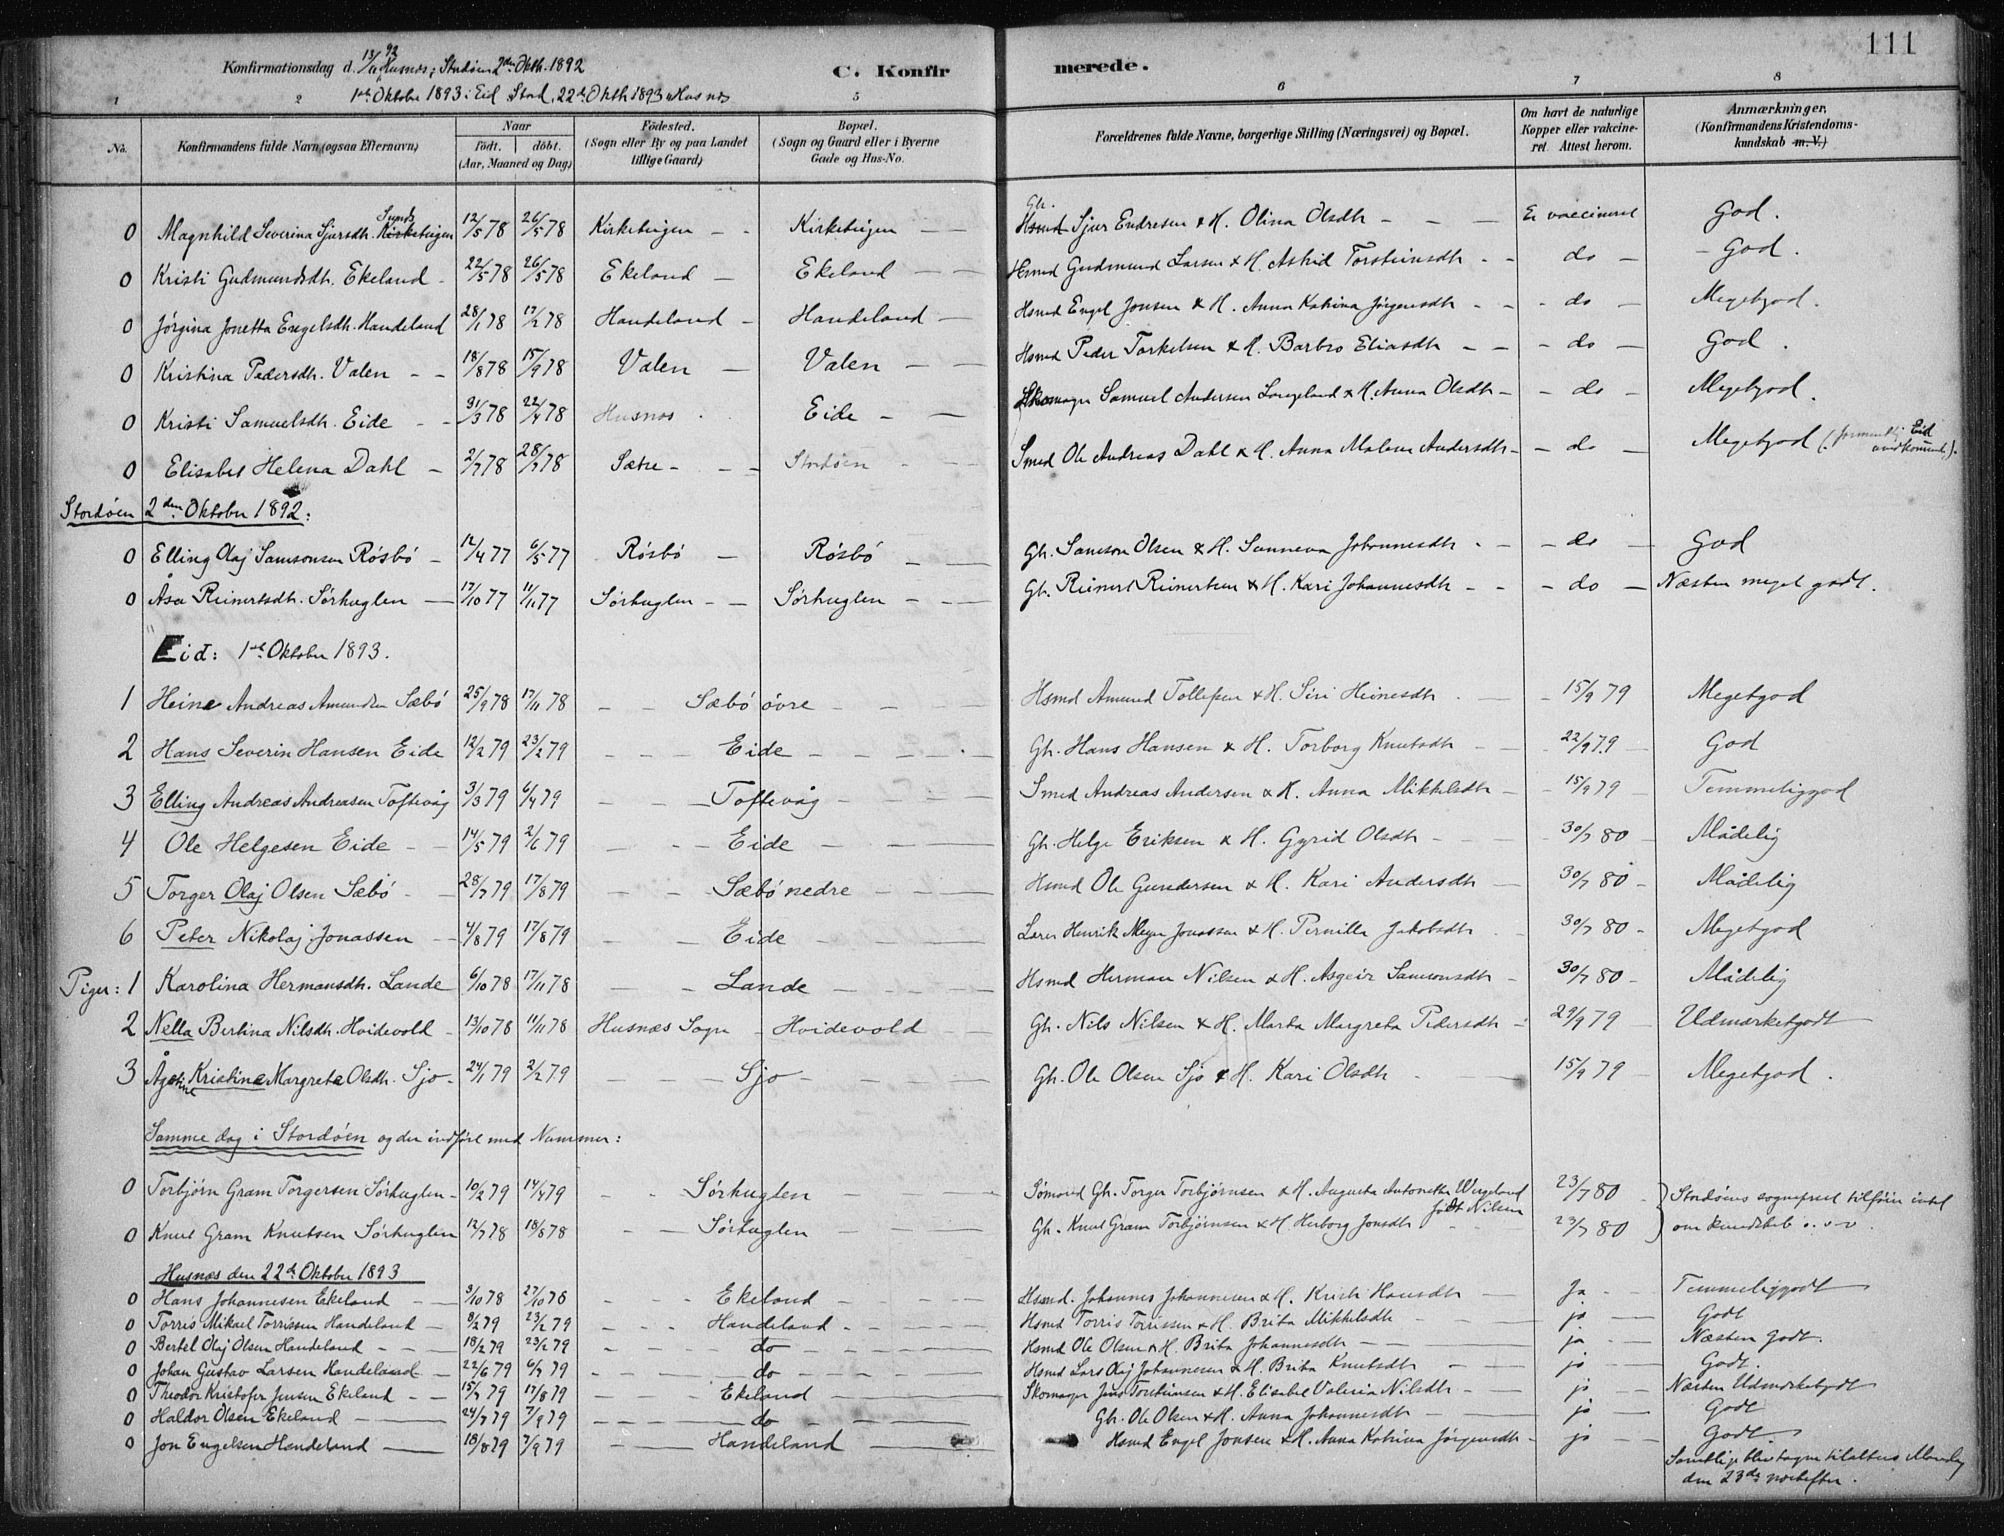 111
Konfirmationsdag d. 13/11 92 Husnæs, Stordøen 2den Okth. 1892
1ste Oktober 1893 i Eid Stord, 22de Oktb 1893 Husnæs
C. Konfirmerede.
1 2 5 6 7 8
No. Konfirmandens fulde Navn (ogsaa Efternavn) Naar Født. døbt. (Aar, Maaned og Dag) Fødested. (Sogn eller By og paa Landet tillige Gaard) Bopæl. (Sogn og Gaard eller i Byerne Gade og Hus-No. Forældrenes fulde Navne, borgerlige Stilling (Næringsvei) og Bopæl. Om havt de naturlige Kopper eller vakcineret. Attest herom. Anmærkninger. (Konfirmandens Kristendomskundskab m. V.)
0 Magnhild Severina Sjursdtr. Sunds Kirketeigen 12/5 78 26/5 78 Kirketeigen Kirketeigen Gb. Sjur Endresen & H. Olina Olsdtr Er vaccineret God.
0 Kristi Gudmundsdtr. Ekeland 22/5 78 26/5 78 Ekeland Ekeland Hsmd Gudmund Larsen & H. Astrid Torsteinsdtr do God.
0 Jørgina Jonetta Engelsdtr. Handeland 28/1 78 17/2 78 Handeland Handeland Hsmd Engel Jonsen & H. Anna Katrina Jørgensdtr do Megetgod.
0 Kristina Pedersdtr. Valen 18/8 78 15/9 78 Valen Valen Hsmd Peder Torkelsen & H. Barbro Eliasdtr do God.
0 Kristi Samuelsdtr. Eide 31/3 78 22/4 78 Husnæs Eide Skomager Samuel Andersen Langeland & H. Anna Olsdtr do Megetgod.
0 Elisabet Helena Dahl 2/7 78 28/7 78 Sætre Stordøen Smed Ole Andreas Dahl & H. Anna Malene Andersdtr do Megetgod (formentlig Eid
Stordøen 2den Oktober 1892:
0 Elling Olaj Samsonsen Røsbø 12/4 77 6/5 77 Røsbø Røsbø Gb. Samson Olsen & H. Sunneva Johannesdtr do God
0 Åsa Reinertsdtr. Sørhuglen 17/10 77 11/11 77 Sørhuglen Sørhuglen Gb. Reinert Reinertsen & H. Kari Johannesdtr do Næsten meget godt.
Eid: 1ste Oktober 1893.
1 Heine Andreas Amundsen Sæbø 25/9 78 17/11 78 Sæbø øvre Hsmd Amund Tollefsen & H. Siri Heinesdtr 15/9 79 Megetgod
2 Hans Severin Hansen Eide 12/2 79 23/2 79 Eide Gb. Hans Hansen & H. Torborg Knutsdtr 22/9 79 God
3 Elling Andreas Andreasen Toftevåg 3/3 79 6/4 79 Toftevåg Smed Andreas Andersen & H. Anna Mikkelsdtr 15/9 79 Temmeliggod
4 Ole Helgesen Eide 14/5 79 2/6 79 Eide Gb. Helge Eriksen & H. Gyrid Olsdtr 30/7 80 Mådelig
5 Torger Olaj Olsen Sæbø 28/7 79 17/8 79 Sæbø nedre Hsmd Ole Gundersen & H. Kari Andersdtr 30/7 80 Mådelig
6 Peter Nikolaj Jonassen 4/8 79 17/8 79 Eide Lærer Henrik Meyer Jonassen & H. Pernille Jakobsdtr 30/7 80 Megetgod
Piger: 1 Karolina Hermansdtr. Lande 6/10 78 17/11 78 Lande Hsmd Herman Nilsen & H. Asgeir Samsonsdtr 30/7 80 Mådelig
2 Nella Bertina Nilsdtr. Hvidevold 13/10 78 11/11 78 Husnæs Sogn Hvidevold Gb. Nils Nilsen & H. Marta Margreta Pedersdtr 29/9 79 Udmærketgodt
3 Ågatine Kristine Margrete Olsdtr. Sjo 24/1 79 2/2 79 Sjo Gb. Ole Olsen Sjo & H. Kari Olsdtr 15/9 79 Megetgod.
Samme dag i Stordøen og der indført med Nummer:
0 Torbjørn Gram Torgersen Sørhuglen 10/2 79 14/4 79 Sørhuglen Gb. Torger Torbjørnsen & H. Augusta Antonette Wergeland født Nilsen 23/7 80 Stordøens sogneprest tilføier intet
0 Knut Gram Knutsen Sørhuglen 12/7 78 18/8 78 Sørhuglen Gb. Knut Gram Torbjørnsen & H. Herborg Jonsdtr 23/7 80 om kundskab o.s.v.
Husnæs den 22de Oktober 1893
0 Hans Johannesen Ekeland 3/10 78 27/10 78 Ekeland Hsmd. Johannes Johannesen & H. Kristi Hansdtr Ja Temmeliggodt
0 Torris Mikael Torrissen Handeland 9/2 79 23/2 79 Handeland Hsmd Torris Torrissen & H. Brita Mikkelsdtr ja Godt
0 Bertel Olaj Olsen Handeland 18/2 79 23/2 79 do Hsmd Ole Olsen & H. Brita Johannesdtr ja Næsten Godt.
0 Johan Gustav Larsen Handeland 22/6 79 6/7 79 do Hsmd Lars Olaj Johannesen & H. Brita Knutsdtr ja Godt.
0 Theodor Kristofer Jensen Ekeland 15/7 79 17/8 79 Ekeland Skomager Jens Torsteinsen & H. Elisabet Valeria Nilsdtr ja Næsten Udmærketgodt
0 Haldor Olsen Ekeland 24/7 79 7/9 79 do Gb. Ole Olsen & H. Anna Johannesdtr ja Godt
0 Jon Engelsen Handeland 18/8 79 7/9 79 Handeland Hsmd Engel Jonsen & H. Anna Katrina Jørgensdtr ja Godt.
Samtlige blev tagne til alters Mandag
den 23de næstefter.